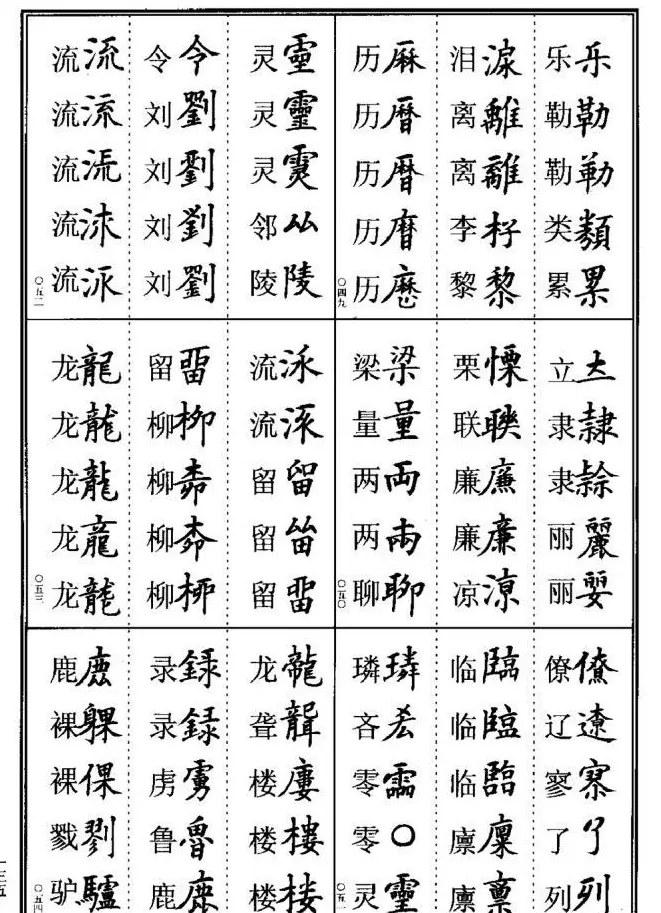 乐乐勒勒勒勒类類累累
泪淚离離离離李杍黎黎
历厤历曆历曆历历
〇四九
立立隶隸隶丽麗丽
栗慄联聨廉廉廉廉凉涼
梁梁量量两両两两聊聊
〇五〇
僚僚辽遼寥寮了了列列
临臨临臨临臨廪廩廪稟
璘璘吝零霝零〇灵靈
〇五一
灵靈灵靈灵邻厸陵陵
令令刘劉刘劉刘劉刘劉
流流流流流流流流流流
〇五二
流流流流留留留留留畱
留畱柳柳柳柳柳
龙龍龙龍龙龍龙龍龙龍
〇五三
龙龍聋聾楼廔楼樓楼楼
录録录録虏虜鲁魯鹿鹿
鹿鹿裸躶裸倮戮剹驴驢
〇五四
一三五